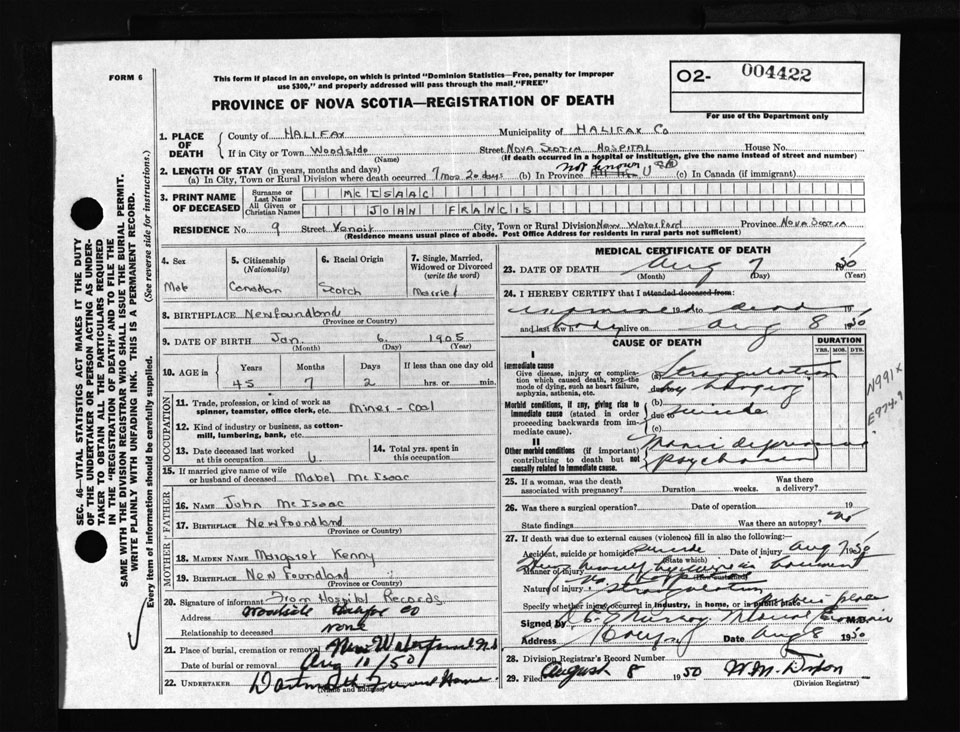 FORM 6
This form if placed in an envelope, on which is printed "Dominion Statistics—Free, penalty for improper
use $300," and properly addressed will pass through the mail, "FREE"
O2- 004422
For use of the Department only
PROVINCE OF NOVA SCOTIA—REGISTRATION OF DEATH
1. PLACE OF DEATH
County of HALIFAX Municipality of HALIFAX Co
If in City or Town Woodside Street NOVA SCOTIA HOSPITAL House No.
(Name) (If death occurred in a hospital or institution, give the name instead of street and number)
2. LENGTH OF STAY (in years, months and days)
(a) In City, Town or Rural Division where death occurred 7 mos 20 days (b) In Province Not known (c) In Canada (if immigrant)
3. PRINT NAME OF DECEASED
Surname or Last Name MC ISAAC
All Given or Christian Names JOHN FRANCIS
RESIDENCE No. 9 Street City, Town or Rural Division New Waterford Province Nova Scotia
(Residence means usual place of abode. Post Office Address for residents in rural parts not sufficient)
4. Sex
Male
5. Citizenship (Nationality)
Canadian
6. Racial Origin
Scotch
7. Single, Married, Widowed or Divorced (write the word)
Married
8. BIRTHPLACE Newfoundland
(Province or Country)
9. DATE OF BIRTH Jan. 6 1905
(Month) (Day) (Year)
10. AGE in Years Months Days If less than one day old
45 7 2 hrs. or min.
OCCUPATION
11. Trade, profession, or kind of work as
spinner, teamster, office clerk, etc. Miner - coal
12. Kind of industry or business, as cotton-
mill, lumbering, bank, etc.
13. Date deceased last worked
at this occupation
14. Total yrs. spent in
this occupation
15. If married give name of wife
or husband of deceased Mabel McIsaac
FATHER
16. Name John McIsaac
17. BIRTHPLACE Newfoundland
(Province or Country)
MOTHER
18. MAIDEN NAME Margaret Kenny
19. BIRTHPLACE Newfoundland
(Province or Country)
20. Signature of informant From Hospital Records
Address Woodside Halifax Co
Relationship to deceased none
21. Place of burial, cremation or removal New Waterford N.S
Date of burial or removal Aug 10/50
22. UNDERTAKER Dartmouth Funeral Home
(Name and address)
MEDICAL CERTIFICATE OF DEATH
23. DATE OF DEATH Aug 7 1950
(Month) (Day) (Year)
24. I HEREBY CERTIFY that I attended deceased from:
examined 19 to 19
and last saw h body alive on Aug 8 1950
CAUSE OF DEATH
DURATION
YRS. MOS. DYS.
I
Immediate cause
Give disease, injury or complica-
tion which caused death, NOT the
mode of dying, such as heart failure,
asphyxia, asthenia, etc.
(a) Strangulation
due to by hanging
Morbid conditions, if any, giving rise to
immediate cause (stated in order
proceeding backwards from im-
mediate cause).
(b) suicide
due to
(c)
II
Other morbid conditions (if important)
contributing to death but not
causally related to immediate cause.
Manic depressive
psychosis
N991x
E974.9
25. If a woman, was the death
associated with pregnancy? Duration weeks. Was there
a delivery?
26. Was there a surgical operation? Date of operation 19
State findings Was there an autopsy? no
27. If death was due to external causes (violence) fill in also the following:
Accident, suicide or homicide? suicide Date of injury Aug 7 1950
(State which)
Manner of injury Hung himself
(How sustained)
Nature of injury Strangulation
Specify whether injury occurred in industry, in home, or in public place
Signed by Murray Medical Examiner M.D.
Address Date Aug 8 1950
28. Division Registrar's Record Number
29. Filed August 8 1950 W.M. Dixon
(Division Registrar)
SEC. 46—VITAL STATISTICS ACT MAKES IT THE DUTY
OF THE UNDERTAKER OR PERSON ACTING AS UNDER-
TAKER TO OBTAIN ALL THE PARTICULARS REQUIRED
IN THE "REGISTRATION OF DEATH" AND TO FILE THE
SAME WITH THE DIVISION REGISTRAR WHO SHALL ISSUE THE BURIAL PERMIT.
WRITE PLAINLY WITH UNFADING INK. THIS IS A PERMANENT RECORD.
Every item of information should be carefully supplied. (See reverse side for instructions.)